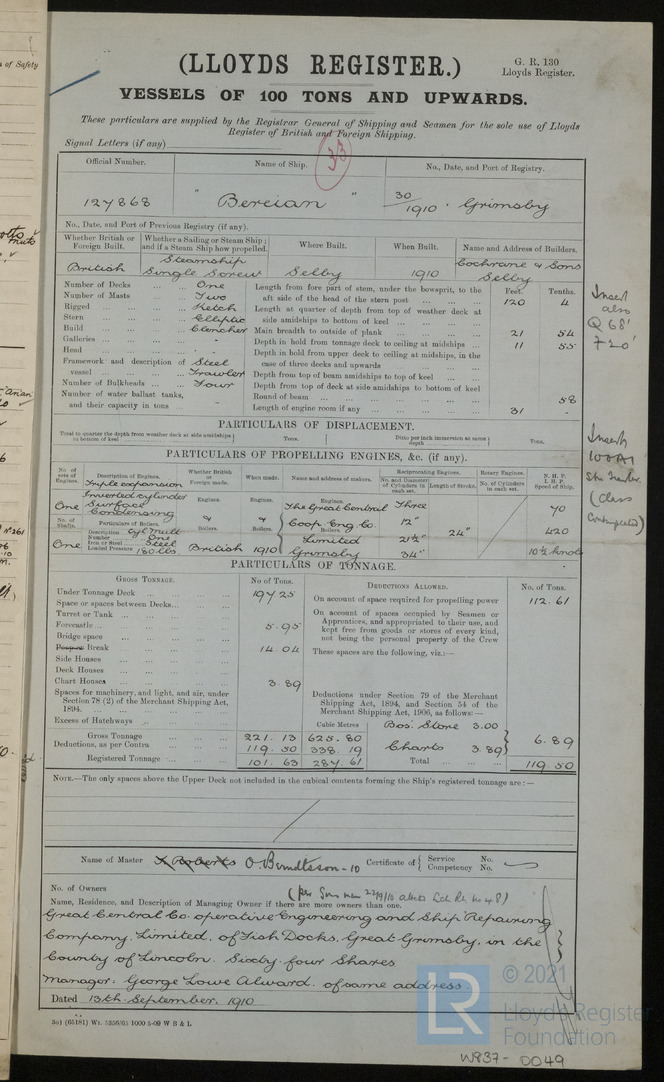 (LLOYDS REGISTER.)
G. R. 130
Lloyds Register.
VESSELS OF 100 TONS AND UPWARDS.
These particulars are supplied by the Registrar General of Shipping and Seamen for the sole use of Lloyds
Register of British and Foreign Shipping.
Signal Letters (if any)
33
Official Number. Name of Ship. No., Date, and Port of Registry.
127868 " Bercian " 30/1910 . Grimsby
No., Date, and Port of Previous Registry (if any).
Whether British or Foreign Built. Whether a Sailing or Steam Ship; and if a Steam Ship how propelled. Where Built. When Built. Name and Address of Builders.
British Steamship Single Screw Selby 1910 Cochrane & Sons Selby
Number of Decks One Length from fore part of stem, under the bowsprit, to the Feet. Tenths.
Number of Masts Two aft side of the head of the stern post 120 4
Rigged Ketch Length at quarter of depth from top of weather deck at
Stern Elliptic side amidships to bottom of keel
Build Clencher Main breadth to outside of plank 21 54
Galleries - Depth in hold from tonnage deck to ceiling at midships 11 55
Head - Depth in hold from upper deck to ceiling at midships, in the
Framework and description of vessel Steel Trawler case of three decks and upwards
Depth from top of beam amidships to top of keel
Number of Bulkheads Four Depth from top of deck at side amidships to bottom of keel
Number of water ballast tanks, Round of beam 58
and their capacity in tons - Length of engine room if any 31 -
Insert also Q 68' F 20'
PARTICULARS OF DISPLACEMENT.
Total to quarter the depth from weather deck at side amidships to bottom of keel Tons. Ditto per inch immersion at same depth Tons.
PARTICULARS OF PROPELLING ENGINES, &c. (if any).
No. of sets of Engines. Description of Engines. Whether British or Foreign made. When made. Name and address of makers. Reciprocating Engines. Rotary Engines. N. H. P. I. H. P. Speed of Ship.
No. and Diameter of Cylinders in each set. Length of Stroke. No. of Cylinders in each set.
Triple expansion
Inverted cylinder Engines. Engines. Engines.
One Surface Condensing The Great Central Three 70
No. of Shafts. Particulars of Boilers. & Boilers. & Boilers. Coop. Eng. Co. Boilers. 12"
Description Cyl. Mult Limited 21½" 24" 420
Number One
One Iron or Steel Steel British 1910 Grimsby 34" 10½ knots
Loaded Pressure 180 lbs
Insert 100A1 Stm Trawler (Class Contemplated)
PARTICULARS OF TONNAGE.
Gross Tonnage. No of Tons. Deductions Allowed. No. of Tons.
Under Tonnage Deck 197 25 On account of space required for propelling power 112.61
Space or spaces between Decks On account of spaces occupied by Seamen or
Turret or Tank Apprentices, and appropriated to their use, and
Forecastle 5.95 kept free from goods or stores of every kind,
Bridge space not being the personal property of the Crew
Poop or Break 14.04 These spaces are the following, viz.:—
Side Houses
Deck Houses
Chart Houses 3.89
Spaces for machinery, and light, and air, under Deductions under Section 79 of the Merchant
Section 78 (2) of the Merchant Shipping Act, Shipping Act, 1894, and Section 54 of the
1894. Merchant Shipping Act, 1906, as follows:—
Excess of Hatchways Cubic Metres Bos. Store 3.00
Gross Tonnage 221.13 625.80 6.89
Deductions, as per Contra 119.50 338.19 Charts 3.89
Registered Tonnage 101.63 287.61 Total 119.50
NOTE.—The only spaces above the Upper Deck not included in the cubical contents forming the Ship's registered tonnage are:—
Name of Master Roberts O. Berndtsson - 10 Certificate of Service No.
Competency No.
No. of Owners
Name, Residence, and Description of Managing Owner if there are more owners than one.
Great Central Co. operative Engineering and Ship Repairing
Company, Limited, of Fish Docks, Great Grimsby, in the
County of Lincoln. Sixty four Shares
Manager: George Lowe Alward. of same address.
Dated 13th September. 1910
LR
© 2021
Lloyd's Register
Foundation
W837-0049